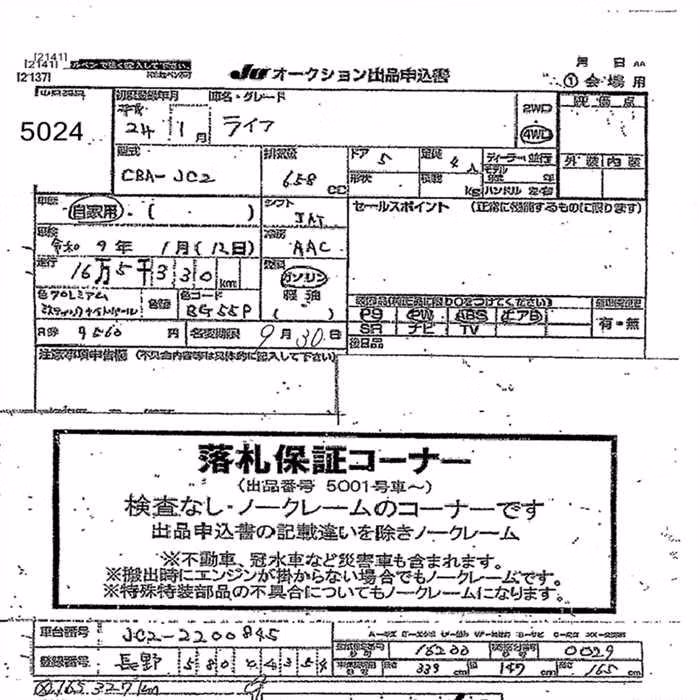 [2141]
[2141]
[2137]
JU オークション出品申込書
月 日
① 会場用
5024
初度登録年月 車名・グレード
平成
24 1月 ライフ
2WD
4WD
評価点
型式 排気量 ドア 5 定員 4人 ディーラー 並行
外装 内装
CBA-JC2 658 CC
形状 積載 kg ハンドル
車歴 自家用・( )
シフト IAT
セールスポイント (正常に機能するものに限ります)
車検 令和 9年 1月(12日)
冷房 AAC
走行 16万5千330km
燃料 ガソリン
軽油
色 プレミアム
色替 色コード BG55P ( )
R券 9560 円 名変期限 9月30日
PS PW ABS エアB
有・無
SR ナビ TV
後日品
注意事項申告欄 (不具合内容等は具体的に記入して下さい)
落札保証コーナー
(出品番号 5001号車～)
検査なし・ノークレームのコーナーです
出品申込書の記載違いを除きノークレーム
※不動車、冠水車など災害車も含まれます。
※搬出時にエンジンが掛からない場合でもノークレームです。
※特殊特装部品の不具合についてもノークレームになります。
車台番号 JC2-2200845
16200 0029
登録番号 長野 580
339 cm 147 cm 165 cm
165,327km